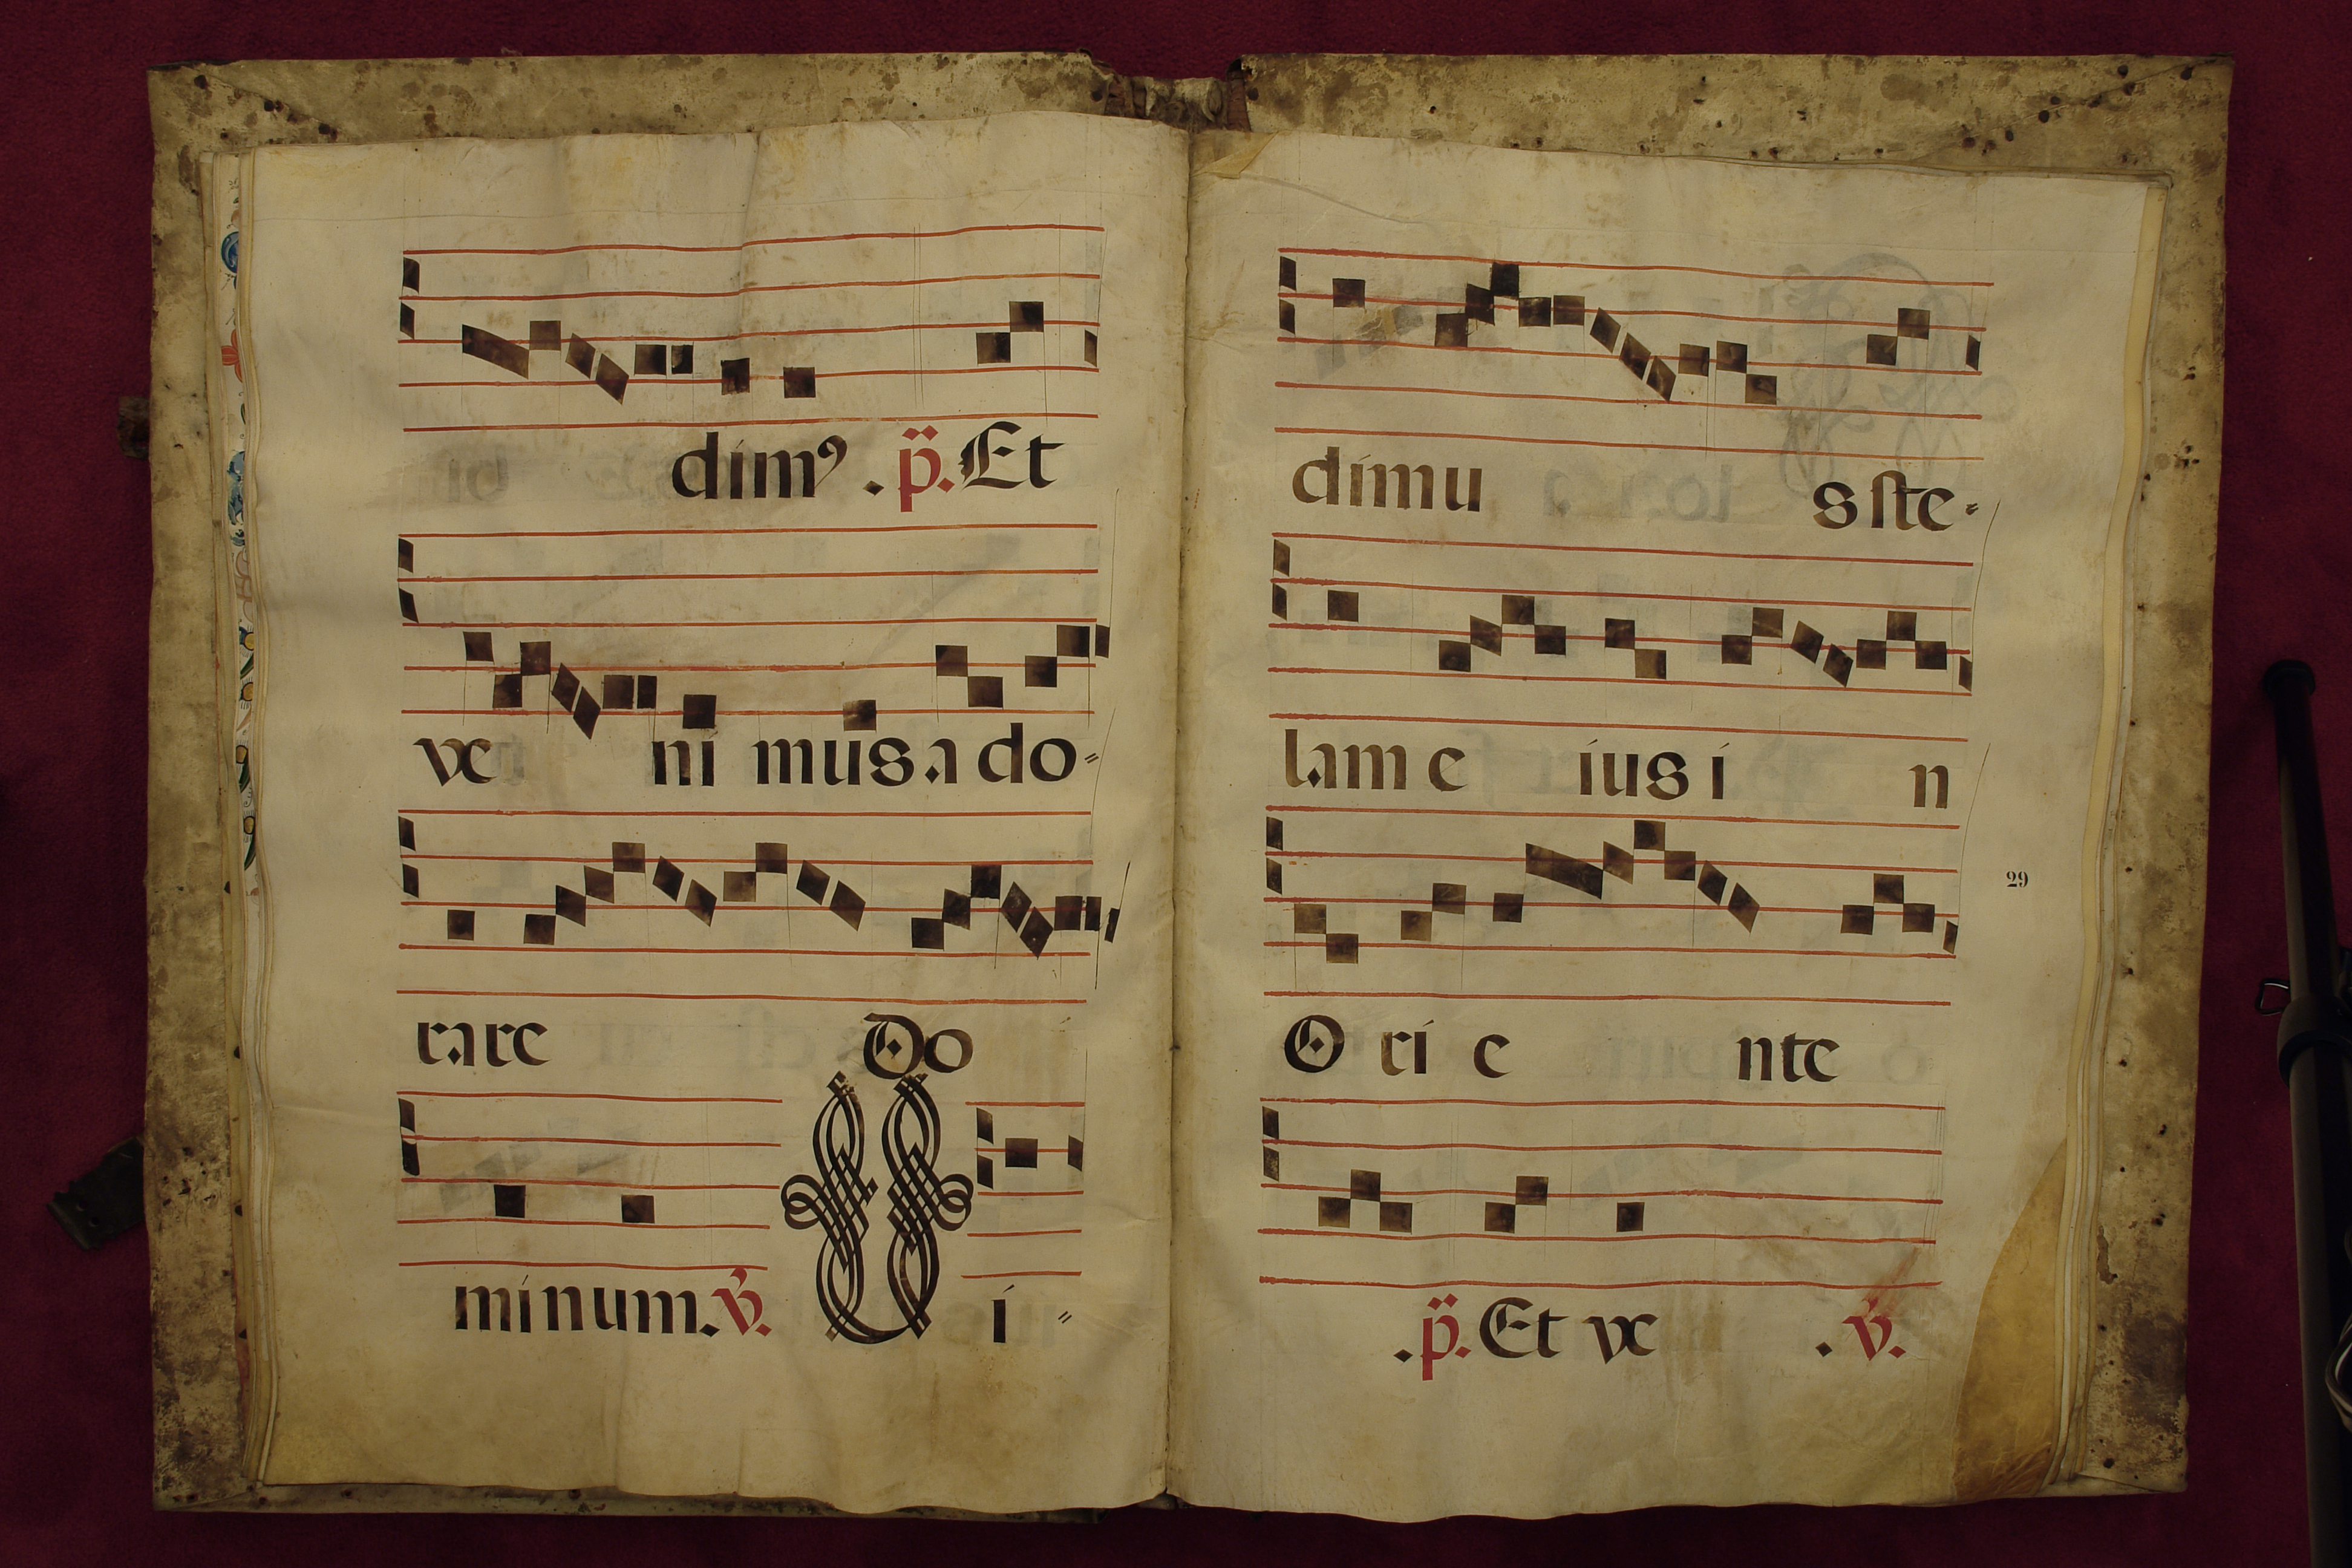 dimꝰ. p̈. Et
ve ni mus ado=
rare Do
minum. v̛. Vi=
dimu s ste=
lam e ius i n
29
Ori e nte
. p̈. Et ve . v̛.